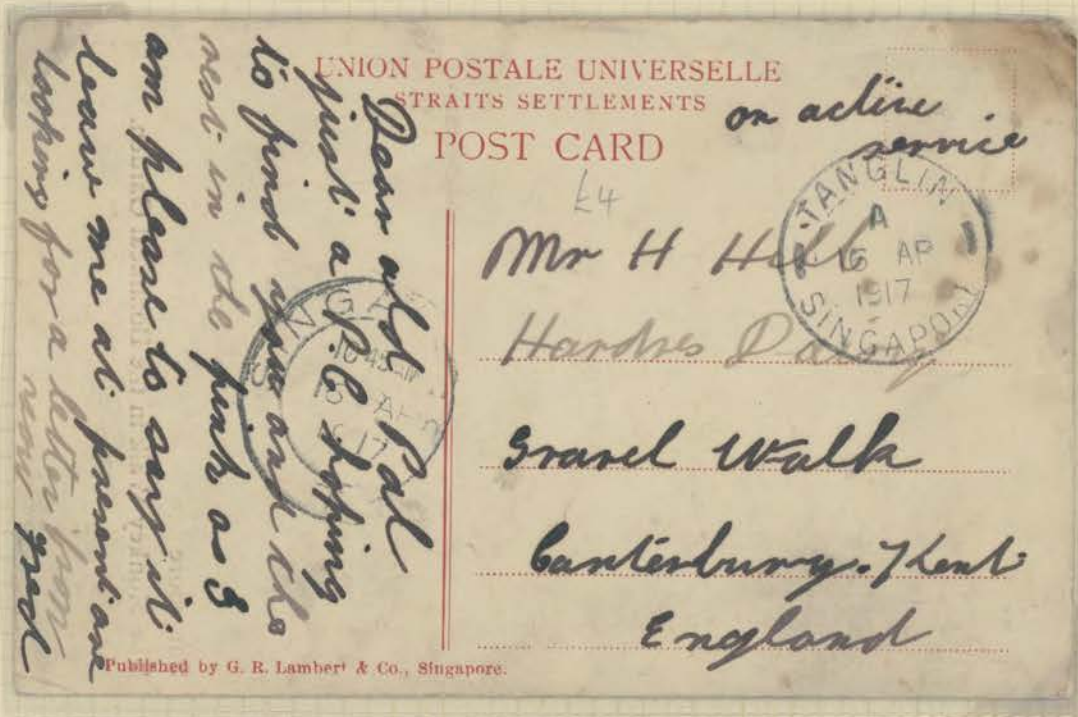 UNION POSTALE UNIVERSELLE
STRAITS SETTLEMENTS
POST CARD
on active
service
£4
TANGLIN
A
AP
1917
SINGAPORE
Mr H Hill
Hardres
Gravel Walk
Canterbury. Kent
England
Dear old Pal
just a P.C hoping
to find you and the
rest in the pink as I
am please to say it
leave me at present am
looking for a letter from
Published by G. R. Lambert & Co., Singapore.